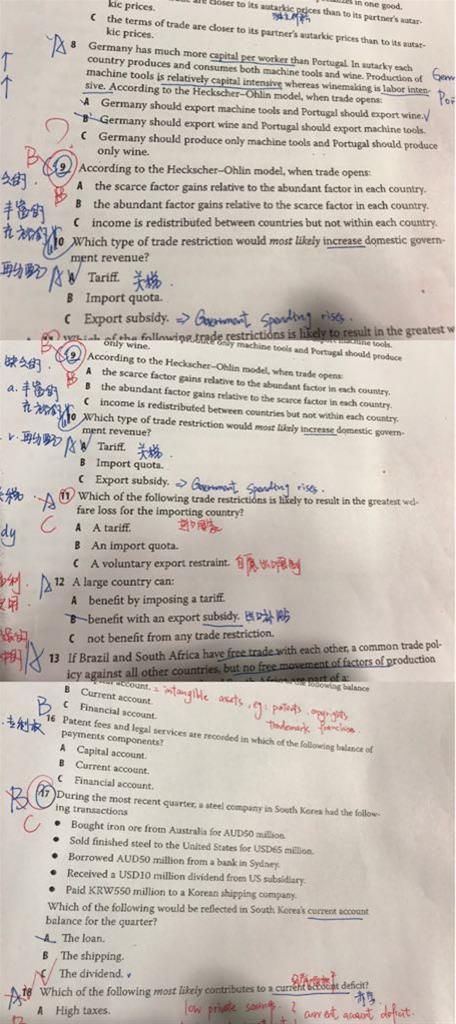 kic prices.
C the terms of trade are closer to its partner's autarkic prices than to its autar-
kic prices.
A 8 Germany has much more capital per worker than Portugal. In autarky each
country produces and consumes both machine tools and wine. Production of
machine tools is relatively capital intensive whereas winemaking is labor inten-
sive. According to the Heckscher–Ohlin model, when trade opens:
A Germany should export machine tools and Portugal should export wine.
B Germany should export wine and Portugal should export machine tools.
C Germany should produce only machine tools and Portugal should produce
only wine.
?
B 9 According to the Heckscher–Ohlin model, when trade opens:
B
A the scarce factor gains relative to the abundant factor in each country.
B the abundant factor gains relative to the scarce factor in each country.
C income is redistributed between countries but not within each country.
丰富的
10 Which type of trade restriction would most likely increase domestic govern-
ment revenue?
A A Tariff. 关税
B Import quota.
C Export subsidy. ⇒ Government Spending rises.
Which of the following trade restrictions is likely to result in the greatest w
only wine.
only machine tools and Portugal should produce
9 According to the Heckscher–Ohlin model, when trade opens:
B
A the scarce factor gains relative to the abundant factor in each country.
a. 丰富的
B the abundant factor gains relative to the scarce factor in each country.
C income is redistributed between countries but not within each country.
10 Which type of trade restriction would most likely increase domestic govern-
ment revenue?
A A Tariff. 关税
B Import quota.
C Export subsidy. ⇒ Government Spending rises.
A 11 Which of the following trade restrictions is likely to result in the greatest wel-
fare loss for the importing country?
C
A A tariff.
B An import quota.
C A voluntary export restraint. 自愿出口限制
dy
A 12 A large country can:
A benefit by imposing a tariff.
B benefit with an export subsidy. 出口补贴
C not benefit from any trade restriction.
A 13 If Brazil and South Africa have free trade with each other, a common trade pol-
icy against all other countries, but no free movement of factors of production
following balance
account. = intangible assets, eg: patents, copyrights
B Current account.
trademark franchise.
C Financial account.
B
专利权
16 Patent fees and legal services are recorded in which of the following balance of
payments components?
A Capital account.
B Current account.
C Financial account.
B 17 During the most recent quarter, a steel company in South Korea had the follow-
ing transactions
C
• Bought iron ore from Australia for AUD50 million.
• Sold finished steel to the United States for USD65 million.
• Borrowed AUD50 million from a bank in Sydney.
• Received a USD10 million dividend from US subsidiary.
• Paid KRW550 million to a Korean shipping company.
Which of the following would be reflected in South Korea's current account
balance for the quarter?
A The loan.
B The shipping.
C The dividend.
A 18 Which of the following most likely contributes to a current account deficit?
A High taxes.
low private savings
current account deficit.